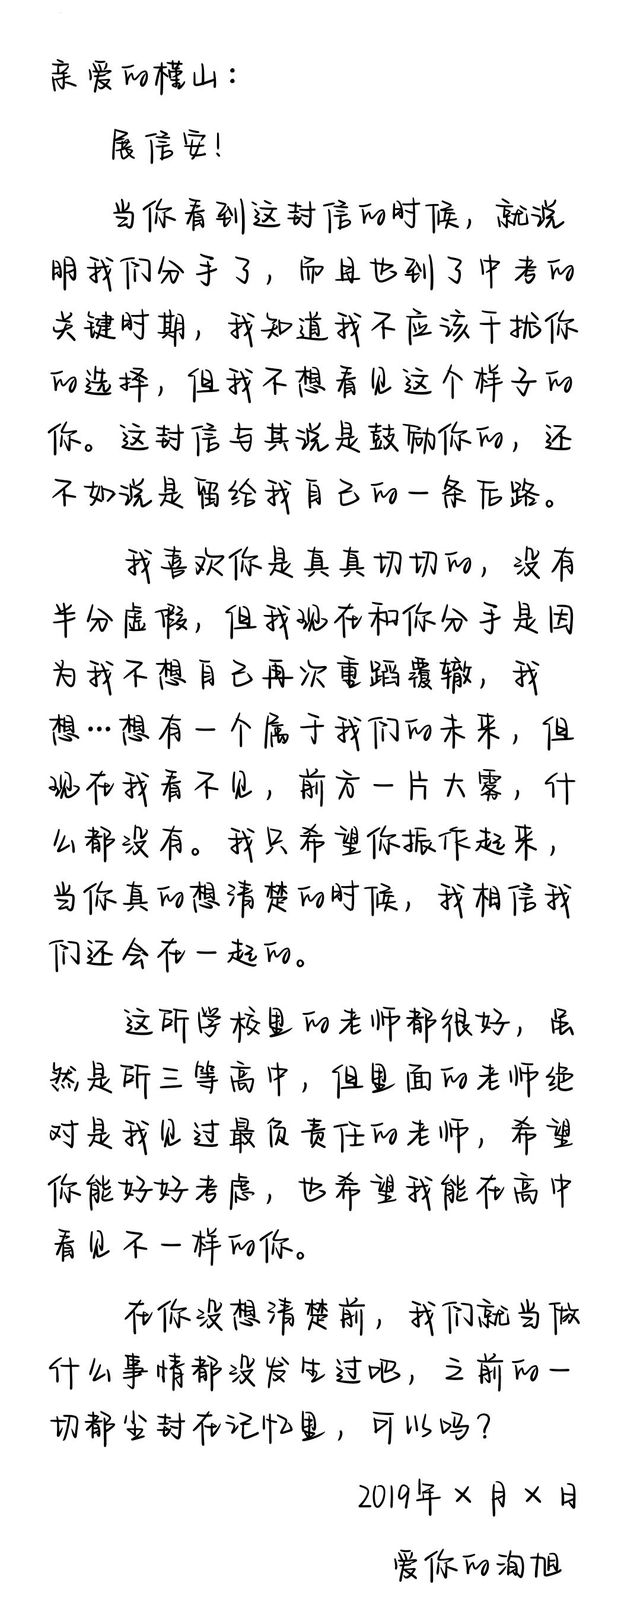 亲爱的槿山：
展信安！
当你看到这封信的时候，就说
明我们分手了，而且也到了中考的
关键时期，我知道我不应该干扰你
的选择，但我不想看见这个样子的
你。这封信与其说是鼓励你的，还
不如说是留给我自己的一条后路。
我喜欢你是真真切切的，没有
半分虚假，但我现在和你分手是因
为我不想自己再次重蹈覆辙，我
想…想有一个属于我们的未来，但
现在我看不见，前方一片大雾，什
么都没有。我只希望你振作起来，
当你真的想清楚的时候，我相信我
们还会在一起的。
这所学校里的老师都很好，虽
然是所三等高中，但里面的老师绝
对是我见过最负责任的老师，希望
你能好好考虑，也希望我能在高中
看见不一样的你。
在你没想清楚前，我们就当做
什么事情都没发生过吧，之前的一
切都尘封在记忆里，可以吗？
2019年×月×日
爱你的洵旭